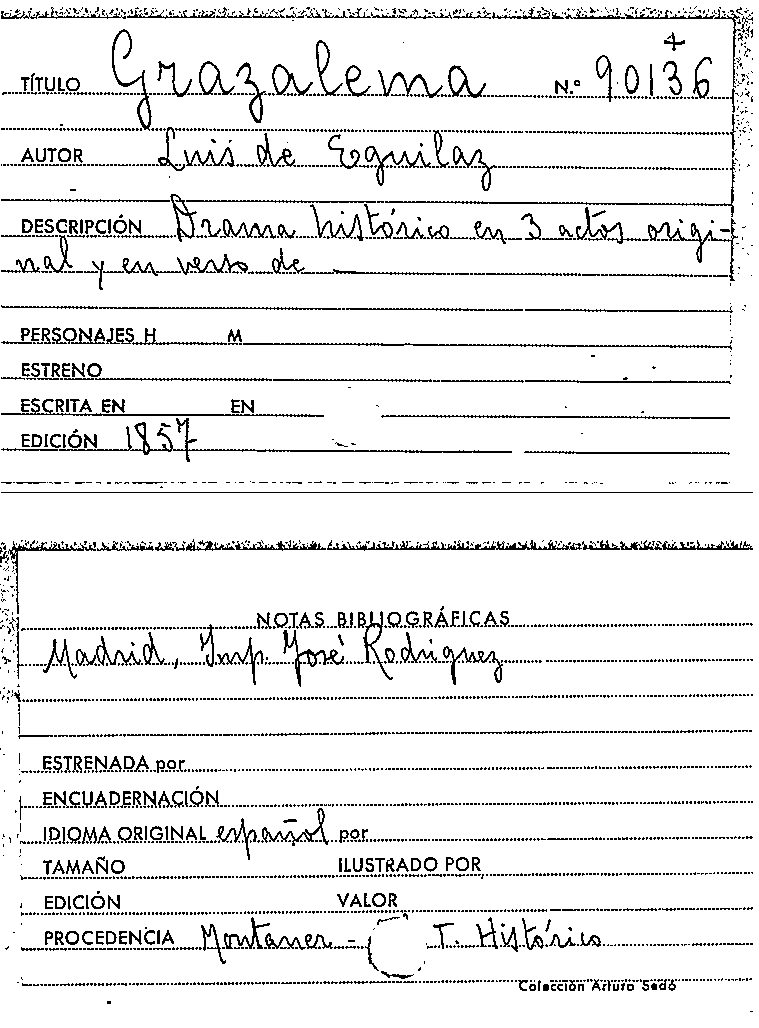 4
TÍTULO Grazalema N.º 90136
AUTOR Luis de Eguilaz
DESCRIPCIÓN Drama histórico en 3 actos origi-
nal y en verso de —
PERSONAJES H M
ESTRENO
ESCRITA EN EN
EDICIÓN 1857
NOTAS BIBLIOGRÁFICAS
Madrid, Imp. José Rodriguez
ESTRENADA por
ENCUADERNACIÓN
IDIOMA ORIGINAL español por
TAMAÑO ILUSTRADO POR
EDICIÓN VALOR
PROCEDENCIA Montaner - T. Histórico
Colección Arturo Sedó